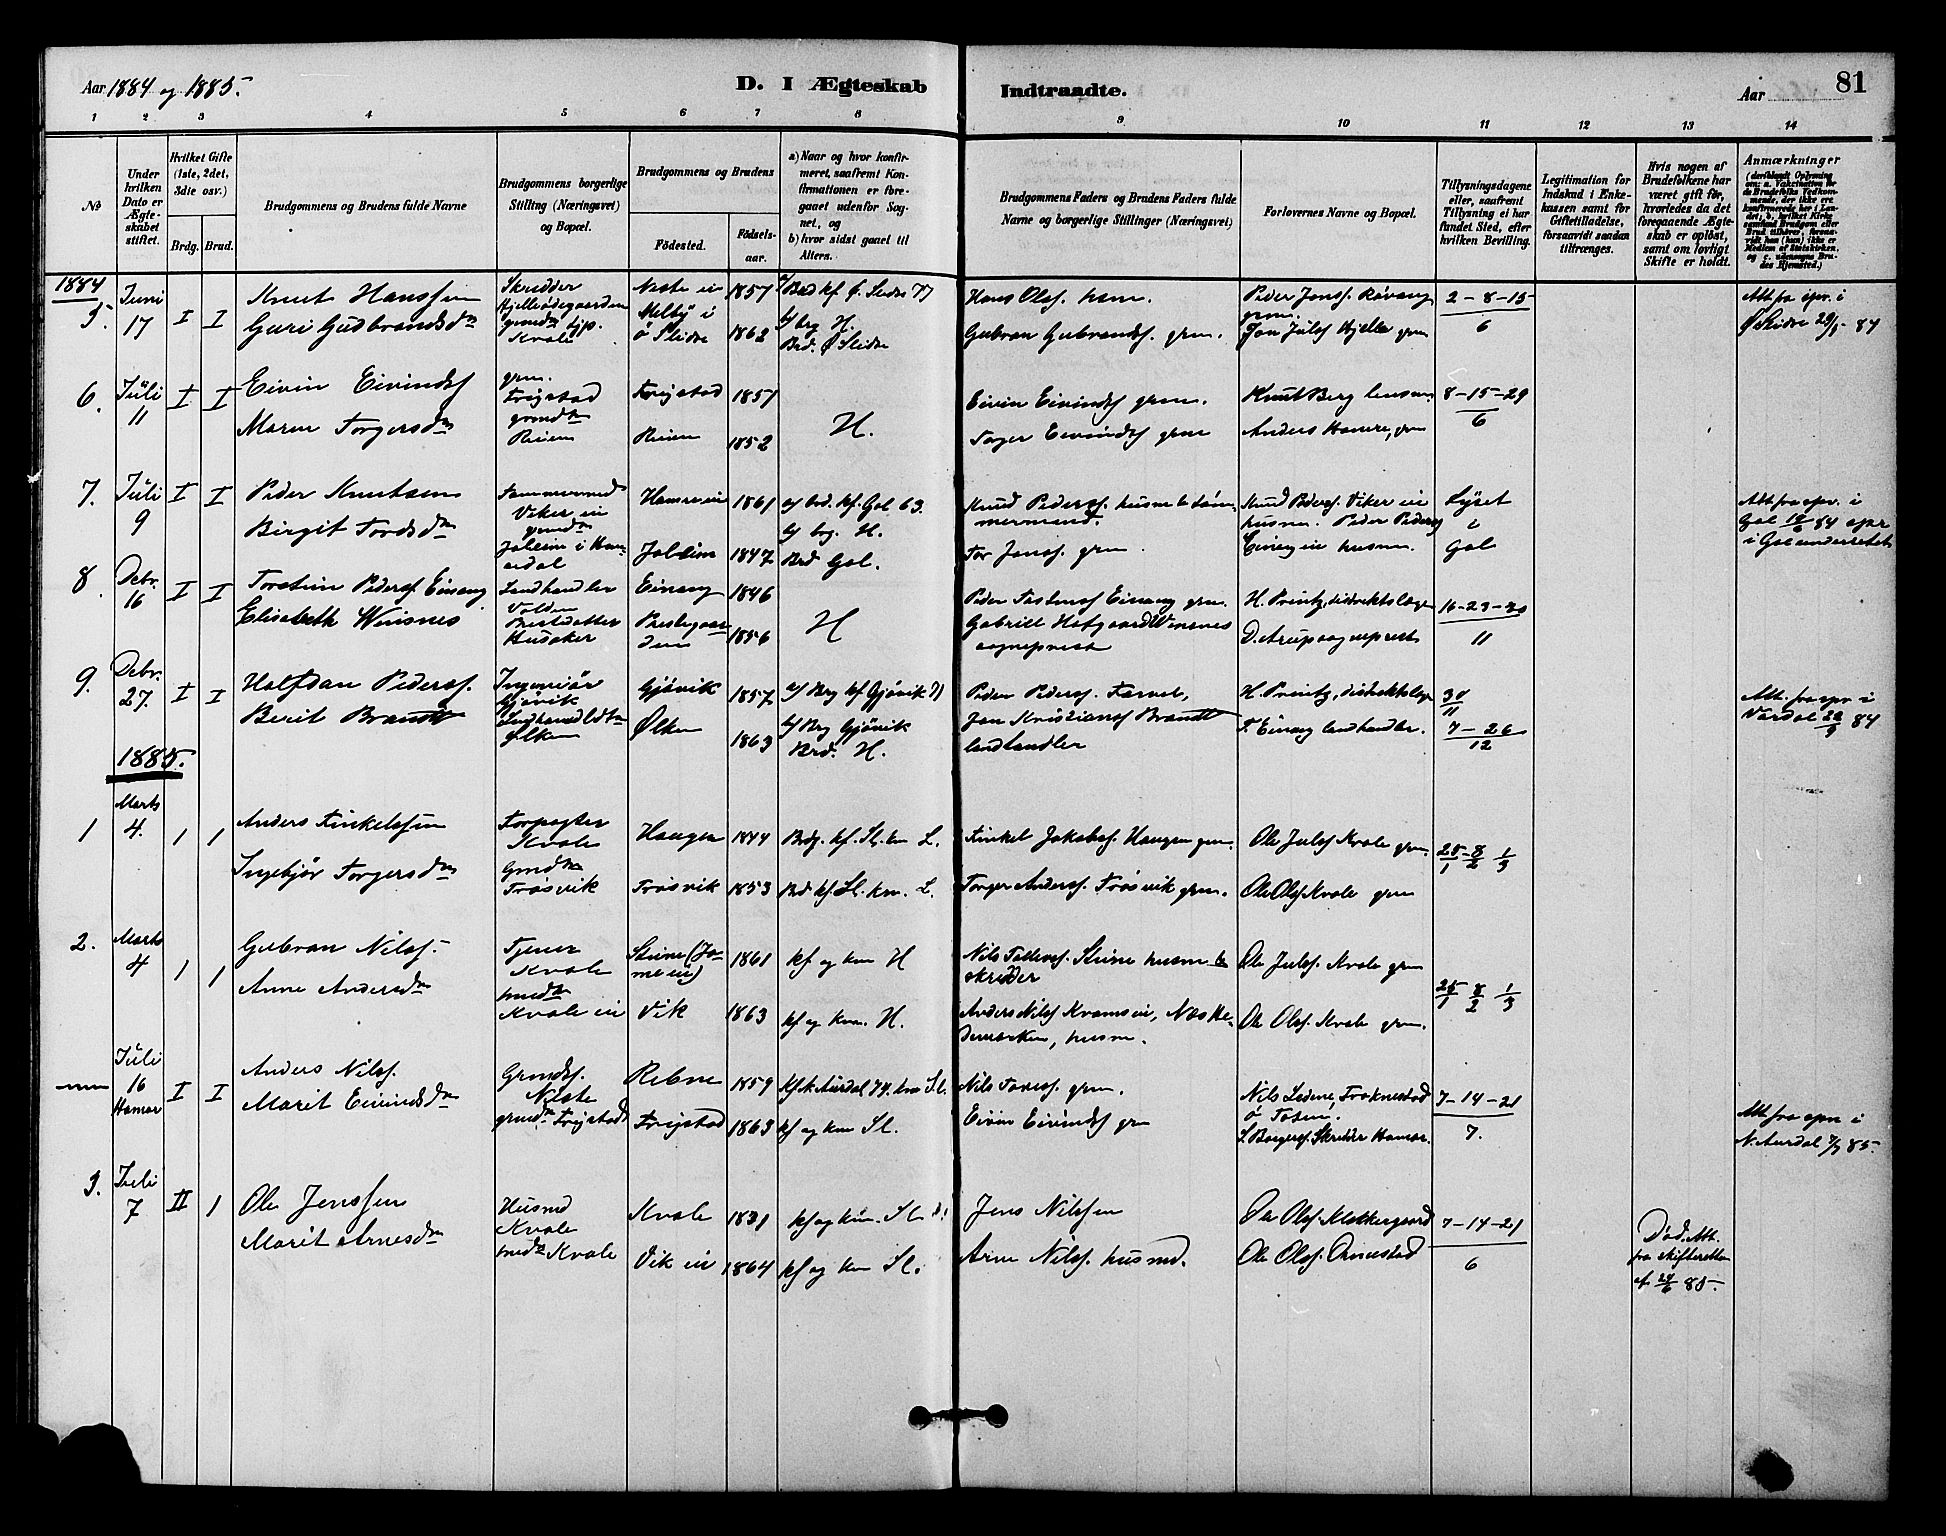 Aar 1884 og 1885.
D. I Ægteskab Indtraadte.
Aar
81
1 2 3 4 5 6 7 8 9 10 11 12 13 14
No
Under hvilken Dato er Ægteskabet stiftet.
Hvilket Gifte (1ste, 2det, 3die osv.)
Brdg. Brud.
Brudgommens og Brudens fulde Navne
Brudgommens borgerlige Stilling (Næringsvei) og Bopæl.
Brudgommens og Brudens
Födested.
Födselsaar.
a) Naar og hvor konfirmeret, saafremt Konfirmationen er foregaaet udenfor Sognet, og
b) hvor sidst gaaet til Alters.
Brudgommens Faders og Brudens Faders fulde Navne og borgerlige Stillinger (Næringsvei)
Forlovernes Navne og Bopæl.
Tillysningsdagene eller, saafremt Tillysning ei har fundet Sted, efter hvilken Bevilling.
Legitimation for Indskud i Enkekassen samt for Giftetilladelse, forsaavidt saadan tiltrænges.
Hvis nogen af Brudefolkene har været gift før, hvorledes da det foregaaende Ægteskab er oplöst, samt om lovligt Skifte er holdt.
Anmærkninger
1884
5. Juni 17 I I
Knut Hanssen
Guri Gudbrandsdn
Skrædder
Kvale
Melby i
ö Slidre
1857
1862
Ø. Slidre
Hans Olsf. husm.
Gubran Gubrandsf. grm.
Peder Jonsf. Røvang
grm.
Jon Julsf Hjelle grm
2 - 8 - 15
6
Att. fra spr. i
Ø Slidre 29/5 - 84
6. Juli 11 I I
Eivin Eivindsf
Maren Torgersdn
grm.
Frigstad
grmdtn
Reien
Frigstad
Reien
1857
1852
H.
Eivin Eivindsf grm.
Torger Eivindsf grm
Knut Berg lensm
Anders Hamre, grm
8 - 15 - 29
6
7. Juli 9 I I
Peder Knutsen
Birgit Tordsdn
Tømmermd
Viker ei
grmdtn
Hamre ei
1861
1847
a) brd. kf. Gol 63.
b) brg. H.
Brd Gol.
Knud Pedersf. husm & tömmermand.
Tor Jonsf. grm.
Knud Pedersf. Viker ei
husm. Peder Pedersf
Einang ei husm.
Lyset
i
Gol
Att fra spr. i
8. Debr. 16 I I
Torstein Pedersf. Einang
Elisabeth Winsnes
Landhandler
Volden
Prestdatter
Einang
Prestegaarden
1846
1856
H
Peder Tostensf Einang grm.
Gabriel Hofgaard Winsnes
sogneprest
H. Printz, distriktslæge
D. Strup sogneprest
16 - 23 - 30
11
9. Debr. 27. I I
Halfdan Pedersf.
Berit Brandt
Ingeniör
Gjövik
Gjövik
Ølken
1857
1863
a) Brg kf Gjövik 71
b) Brg Gjövik
Brd. H.
Peder Pedersf.
Jon Kristiansf Brandt
landhandler
H. Printz, distriktslæge
T. Einang landhandler.
30
11
7 - 26
12
Att. fra spr i
Vardal 84
1885.
1 Marts 4. 1 1
Anders Finkelssen
Ingebjør Torgersdn
Forpagter
Kvale
Gmdtn
Trøsvik
Haugen
Trøsvik
1844
1853
Brdg. kf. Sl. km L.
Brd kf. Sl. km. L.
Finkel Jakobsf. Haugen grm.
Torger Andersf. Trøsvik grm.
Ole Julsf Kvale grm.
Ole Olsf Kvale grm
25/1 - 8/2 1/3
2. Marts 4 1 1
Gubran Nilsf.
Anne Andersdn
Tjener
Kvale
Kvale ei
Vik
1861
1863
kf og km H
kf og km. H.
skrædder
Anders Nilsf Kvams ei, Næs Hedemarken, husm.
Ole Julsf. Kvale grm
Ole Olsf. Kvale grm.
25/1 8/2 1/3
Juli 16 Hamar I I
Anders Nilsf.
Marit Eivindsdn
Grmdsf.
grmdtn Frigstad
Rebne
Frigstad
1859
1863
kf. N. Aurdal 74. km Sl.
kf og km Sl.
Nils Toresf. grm.
Eivin Eivindsf grm
Ö Toten.
Skrædder Hamar.
7 - 14 - 21
7.
Att fra spr i
N. Aurdal 7/7 85.
3. Juli 7 II 1
Ole Jenssen
Marit Arnesdn
Husmd
Kvale
Kvale
Kvale
Vik ei
1831
1864
kf og km. Sl
kf og km Sl.
Jens Nilssen
Arne Nilsf. husmd.
Ole Olsf. Klokkergaard
Ole Olsf.
7 - 14 - 21
6
Död. Att.
fra skifteretten
af 24/6 85.